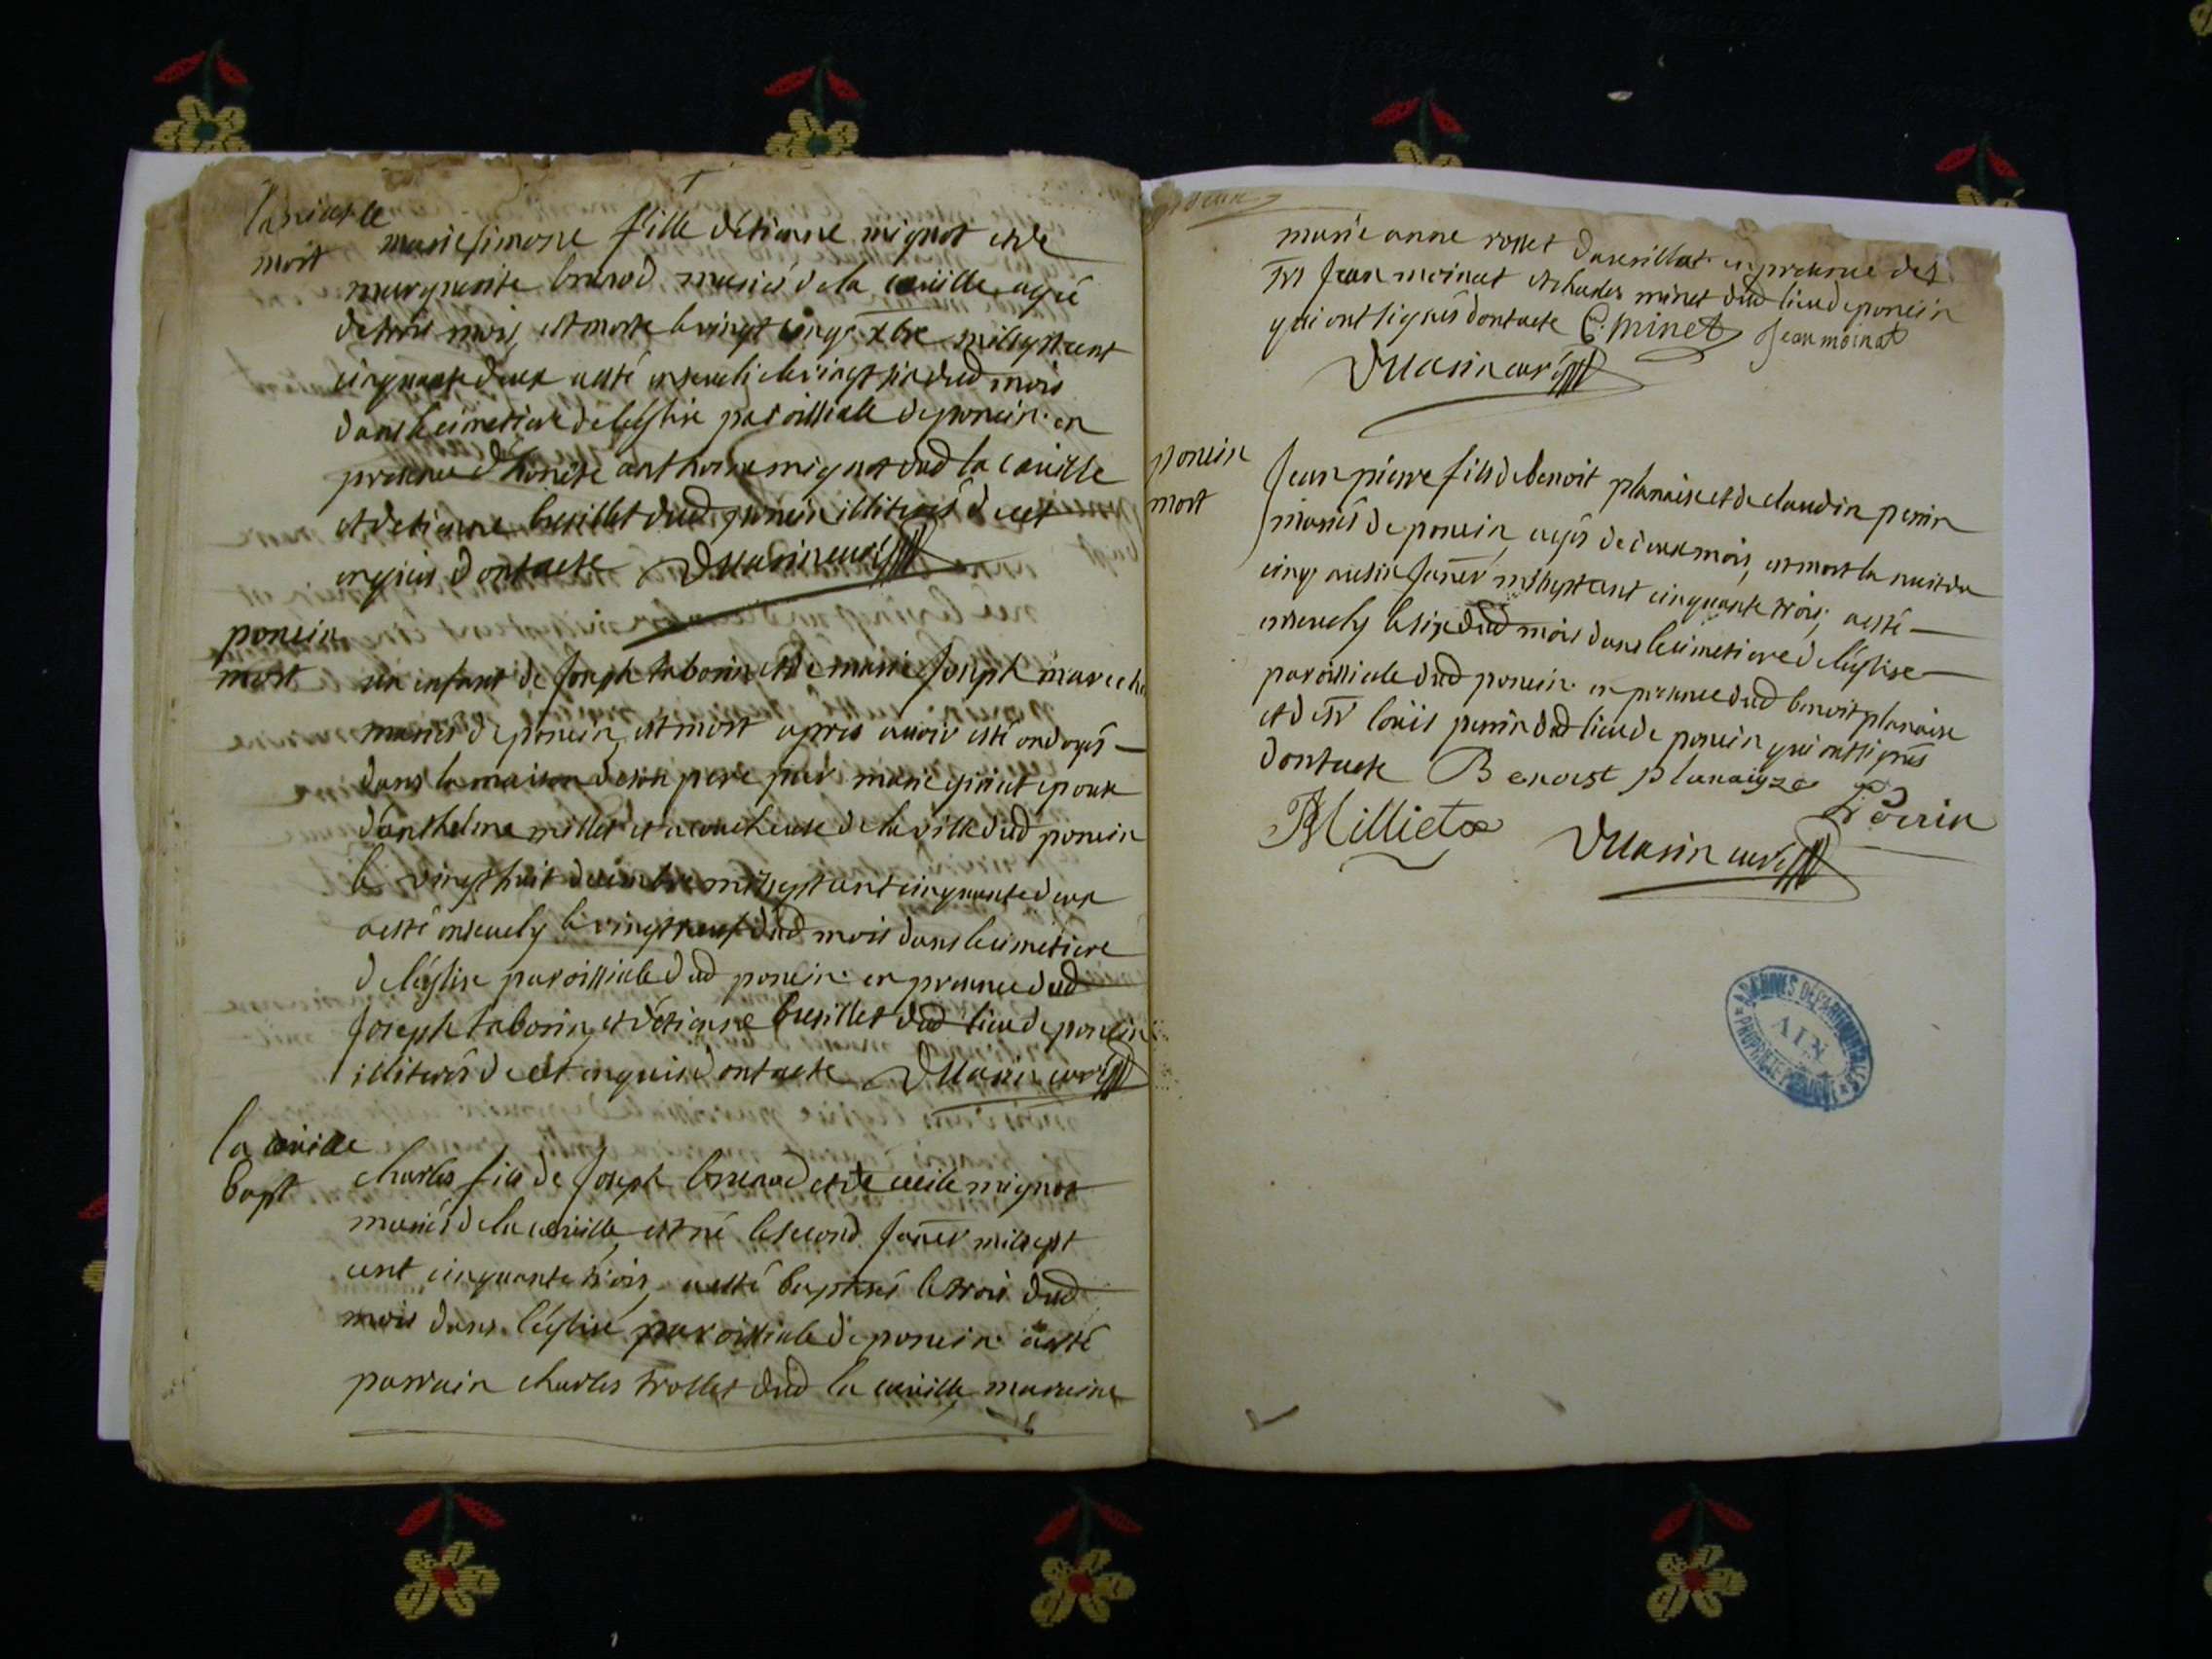 la cueille
mort
marie simone fille d'étienne mignot et de
marguerite brunod mariés de la cueille agée
de trois mois, est morte le vingt cinq xbre mil sept cent
cinquante deux a esté enseveli le vingt six dud mois
dans le cimetiere de léglise paroissiale de poncin en
presence d'honéte anthoine mignot dud la cueille
et d'etienne bresillet dud poncin illiterés de cet
enquis dont acte Dllasin curé
poncin
mort
un enfant de Joseph taborin et de marie Joseph marecha
mariés de poncin, est mort apres avoir esté ondoyés
dans la maison de son pere par marie epouse
d'anthelme millet et accoucheuse de la ville dud poncin
le vingt huit decembre mil sept cent cinquante deux
a esté ensevely le vingt neuf dud mois dans le cimetiere
de léglise paroissiale dud poncin en presence dud
Joseph taborin, et d'étienne bresillet dud lieu de poncin
illiterés de cet enquis dont acte Dllasin curé
la cueille
bapt
charles fils de Joseph brunod et de cecile mignot
mariés de la cueille, est né le second janer mil sept
cent cinquante trois, a esté baptisés le trois dud
mois dans l'église paroissiale de poncin a esté
parrain charles trollet dud la cueille, maraine
marie anne rosset en presence des
srs Jean moinat et charles minet dud lieu de poncin
qui ont signés dont acte C. minet Jean moinat
Dllasin curé
poncin
mort
Jean pierre fils de benoit planaise et de claudin perrin
mariés de poncin, agés de deux mois, est mort la nuit du
cinq au six janer mil sept cent cinquante trois, a esté
ensevely le six dud mois dans le cimetiere de léglise
paroissiale dud poncin en presence dud benoit planaise
et de sr loüis perrin dud lieu de poncin qui ont signés
dont acte Benoist planaize
Perrin
Milliet
Dllasin curé
ARCHIVES DÉPARTEMENTALES
AIN
PROPRIÉTÉ PUBLIQUE